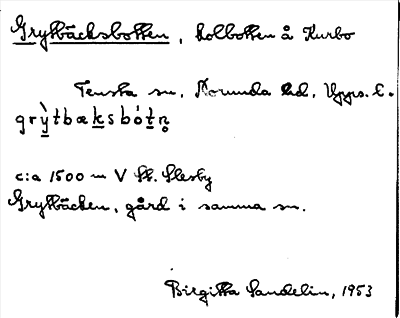 Grytbäcksbotten, kolbotten å Kurbo
Tensta sn, Norunda hd, Upps. l.
grỳtbæksbótn̥
c:a 1500 m V St. Älesby
Grytbäcken, gård i samma sn.
Birgitta Sandelin, 1953